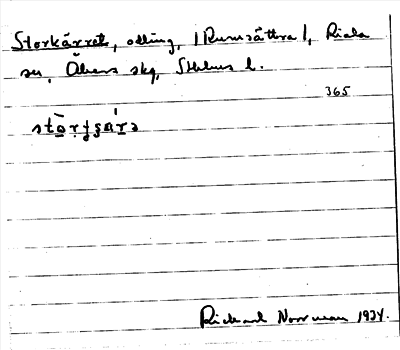 Storkärret, odling, /Rumsättra/, Riala
sn, Åkers skg, Sthlms l.
365
Rickard Norrman 1934.